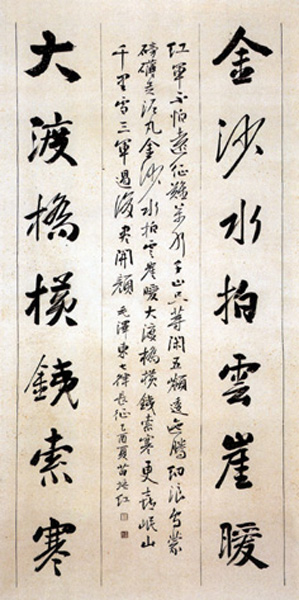 金沙水拍雲崖暖
紅軍不怕遠征難萬水千山只等閑五嶺逶迤騰細浪烏蒙
磅礴走泥丸金沙水拍雲崖暖大渡橋橫銕索寒更喜岷山
千里雪三軍過後尽開顏 毛澤東七律長征 乙酉夏苗培红
大渡橋橫銕索寒